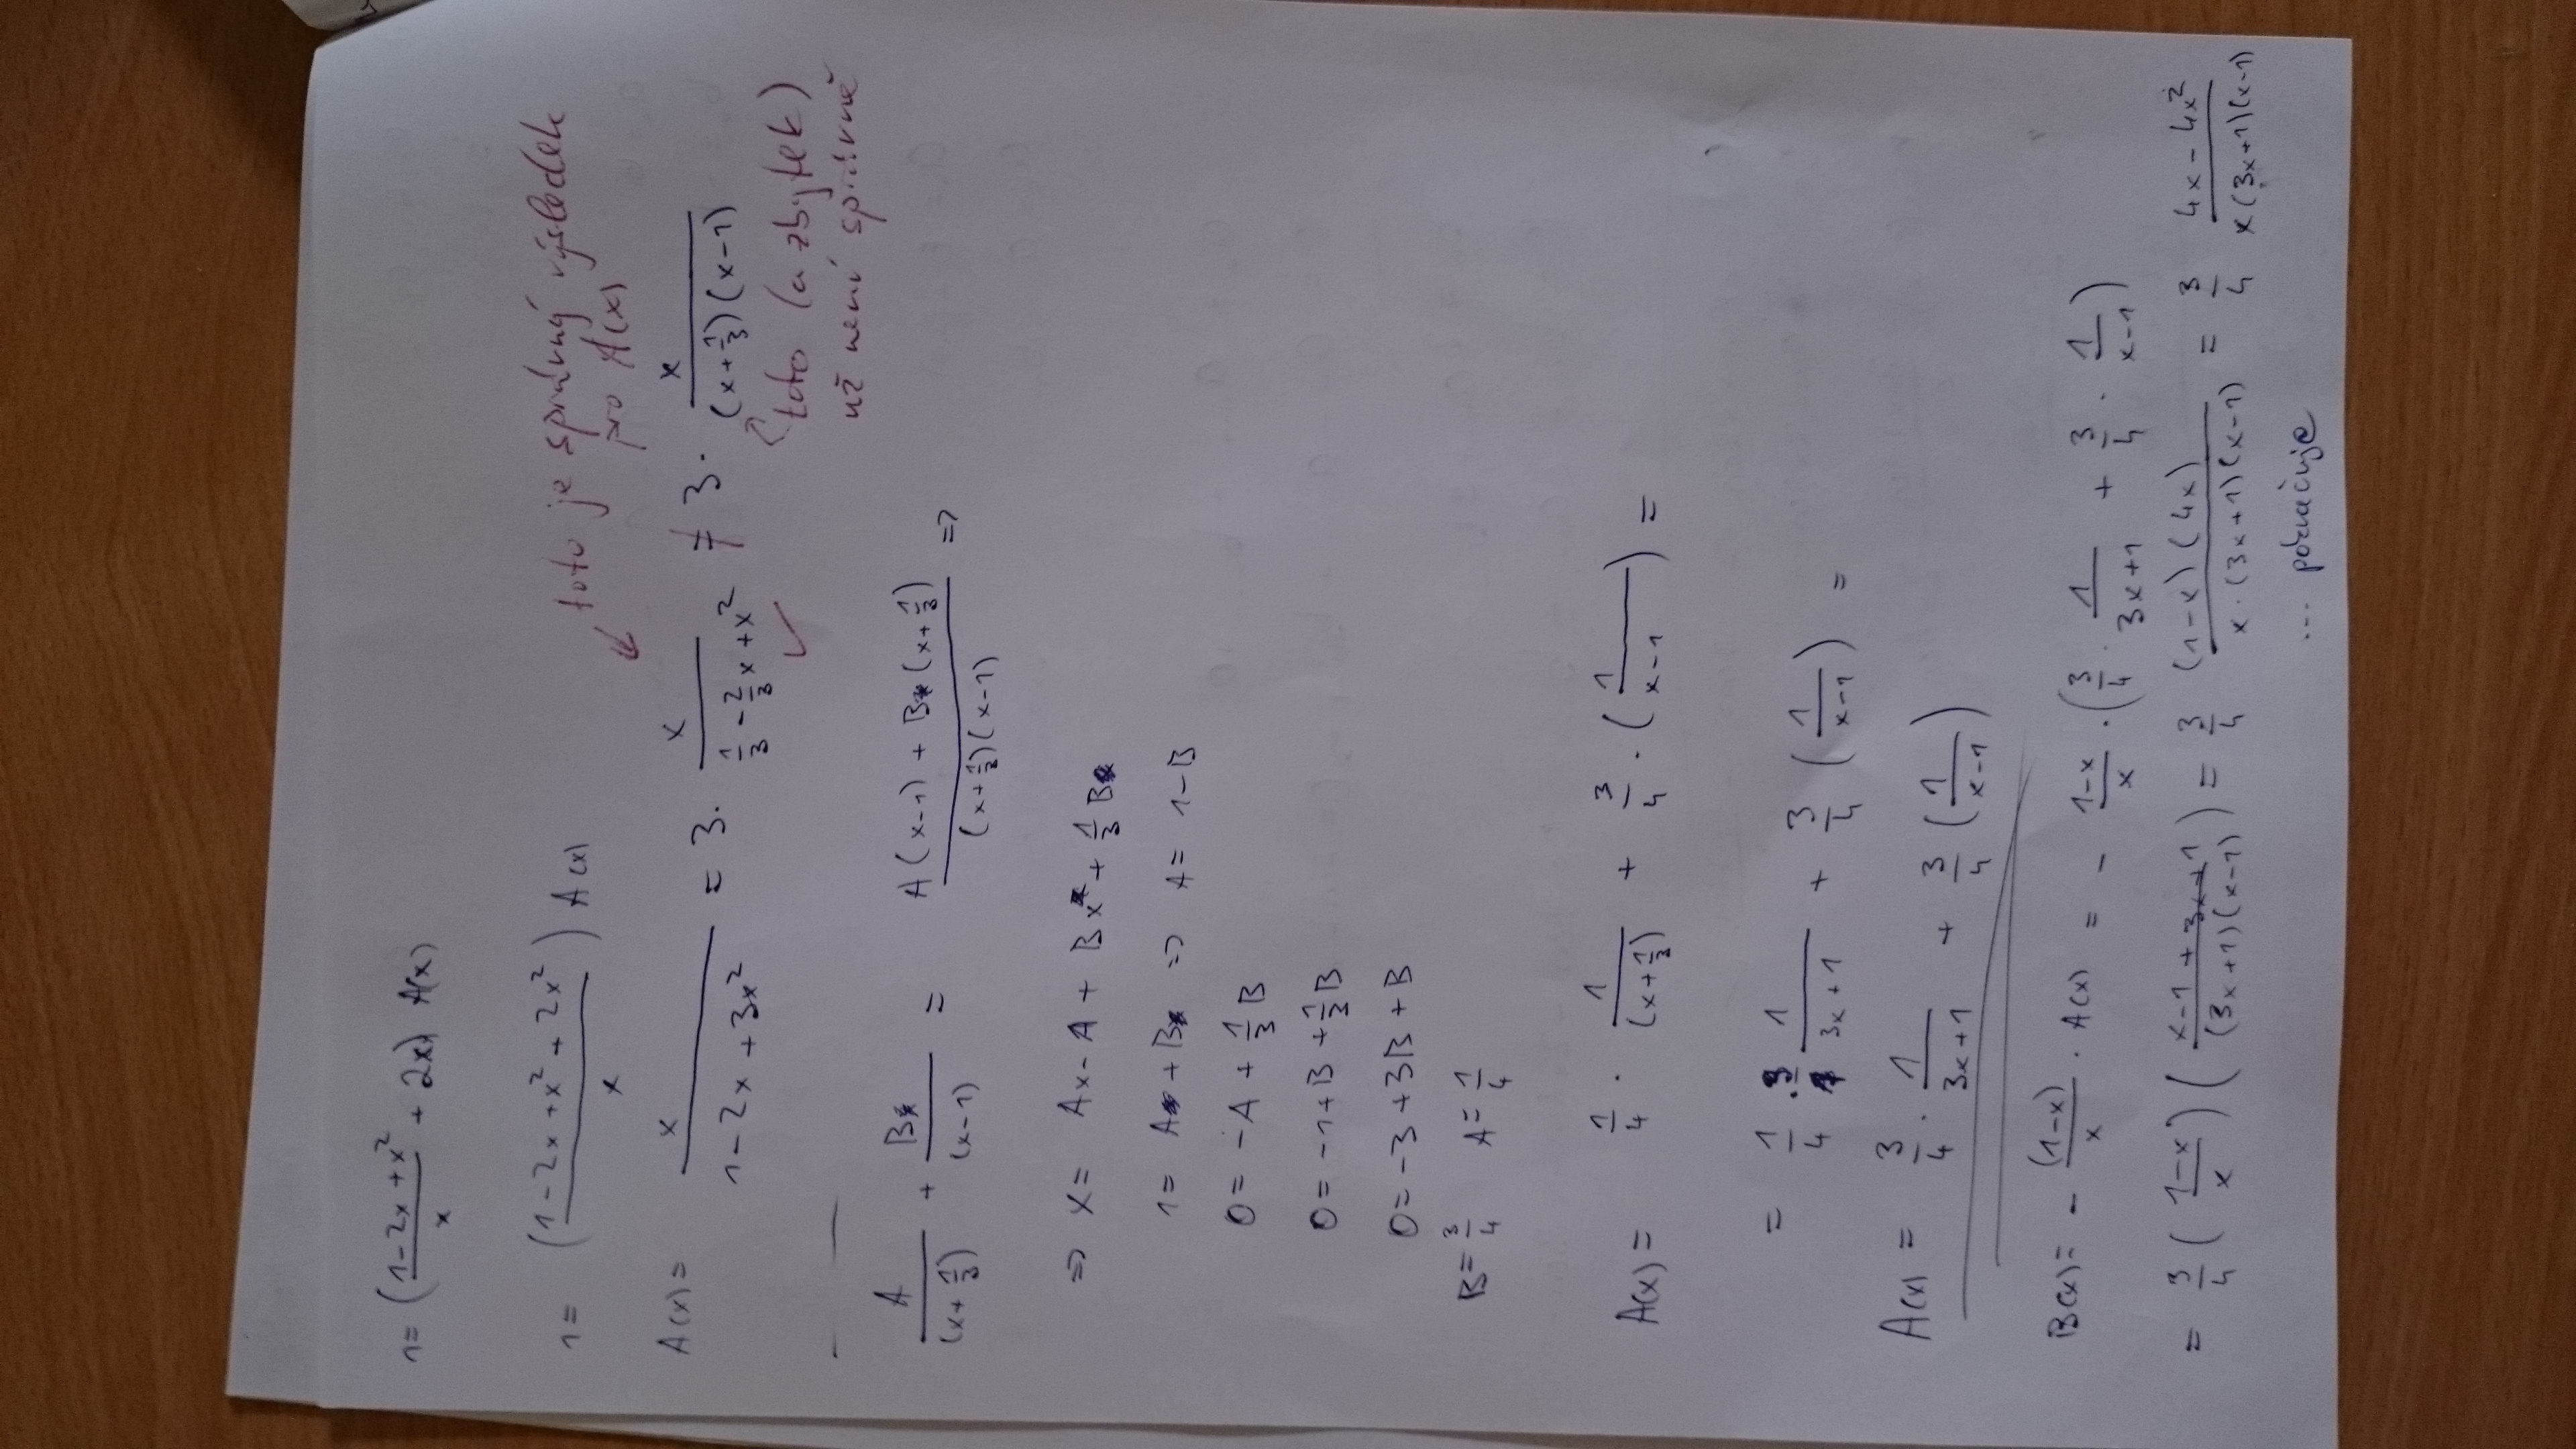 1 = ( (1-2x+x²)/x + 2x ) A(x)
1 = ( (1-2x+x²+2x²)/x ) A(x)
toto je správný výsledek
pro A(x)
A(x) = x/(1-2x+3x²) = 3 · x/(1/3 - 2/3 x + x²) ≠ 3 · x/((x+1/3)(x-1))
✓
toto (a zbytek)
už není správně
A/(x+1/3) + B/(x-1) = (A(x-1) + B(x+1/3))/((x+1/3)(x-1)) =>
=> x = Ax - A + Bx + 1/3 B
1 = A + B => A = 1-B
0 = -A + 1/3 B
0 = -1+B + 1/3 B
0 = -3 +3B + B
B = 3/4 A = 1/4
A(x) = 1/4 · 1/(x+1/3) + 3/4 · ( 1/(x-1) ) =
= 1/4 · 3 1/(3x+1) + 3/4 ( 1/(x-1) ) =
A(x) = 3/4 · 1/(3x+1) + 3/4 ( 1/(x-1) )
B(x) = - (1-x)/x · A(x) = - (1-x)/x · ( 3/4 · 1/(3x+1) + 3/4 · 1/(x-1) )
= 3/4 ( (1-x)/x ) ( (x-1+3x+1)/((3x+1)(x-1)) ) = 3/4 (1-x)(4x)/(x·(3x+1)(x-1)) = 3/4 (4x-4x²)/(x(3x+1)(x-1))
... pokračuje